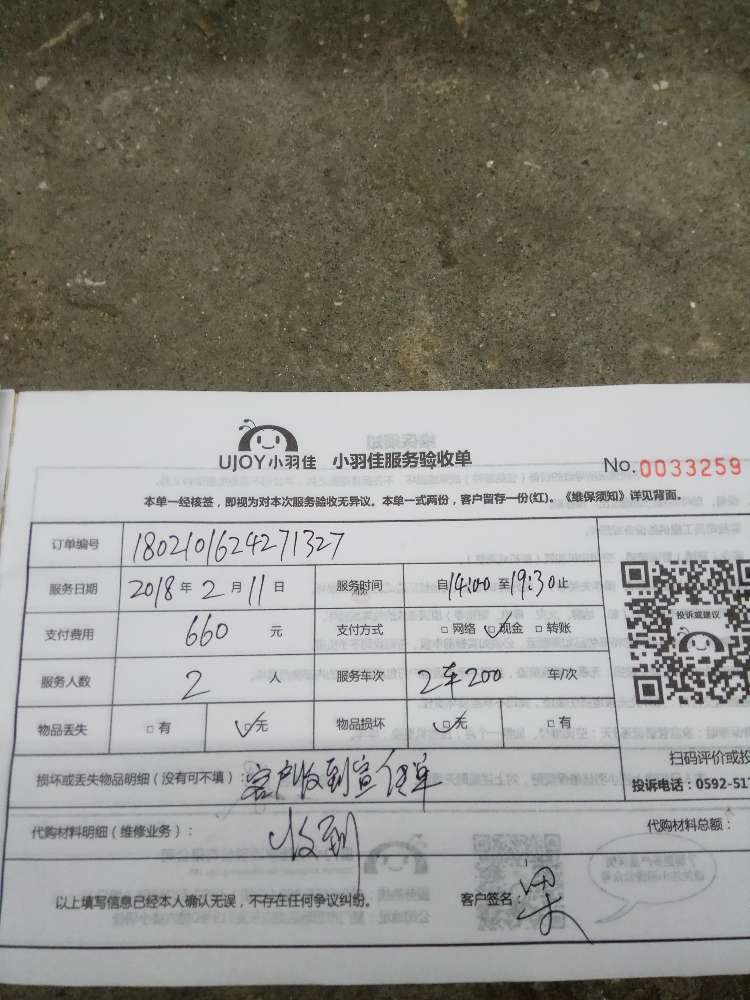 UJOY小羽佳 小羽佳服务验收单 No.0033259
本单一经核签，即视为对本次服务验收无异议。本单一式两份，客户留存一份(红)。《维保须知》详见背面。
订单编号 180210162427​1327
服务日期 2018年2月11日 服务时间 自14:00至19:30止
支付费用 660元 支付方式 □网络 ☑现金 □转账
投诉或建议
服务人数 2人 服务车次 2车200 车/次
物品丢失 □有 ☑无 物品损坏 ☑无 □有
扫码评价或投
损坏或丢失物品明细（没有可不填）：客户收到宣传单
投诉电话：0592-517
代购材料明细（维修业务）： 收到 代购材料总额：
以上填写信息已经本人确认无误，不存在任何争议纠纷。 客户签名：